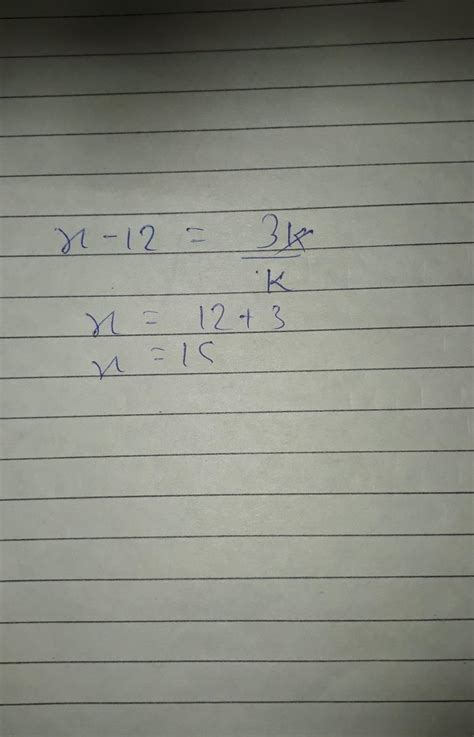 x - 12 = 3k/k
x = 12 + 3
x = 15